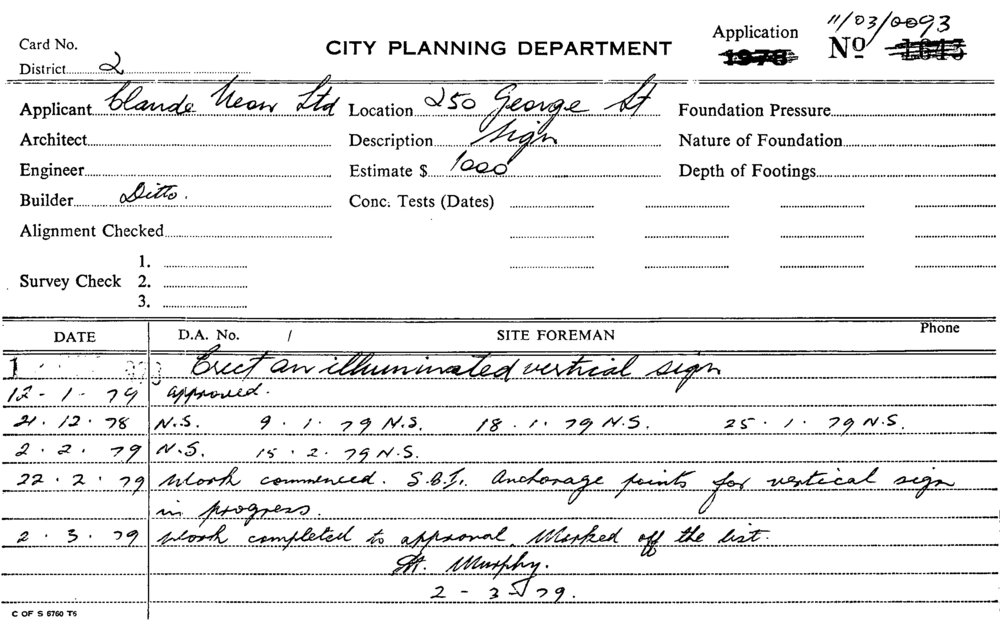 11/03/0093
Application
Card No. CITY PLANNING DEPARTMENT 1978 No 1643
District 2
Applicant Claude Neon Ltd Location 250 George St Foundation Pressure
Architect Description sign Nature of Foundation
Engineer Estimate $ 1000 Depth of Footings
Builder Ditto. Conc. Tests (Dates)
Alignment Checked
1.
Survey Check 2.
3.
DATE D.A. No. / SITE FOREMAN Phone
1 Erect an illuminated vertical sign
12-1-79 approved.
21.12.78 N.S. 9.1.79 N.S. 18.1.79 N.S. 25.1.79 N.S.
2.2.79 N.S. 15.2.79 N.S.
22.2.79 Work commenced. S.B.I. Anchorage points for vertical sign
in progress.
2.3.79 Work completed to approval. Marked off the list.
Murphy.
2-3-79.
C OF S 6760 T6